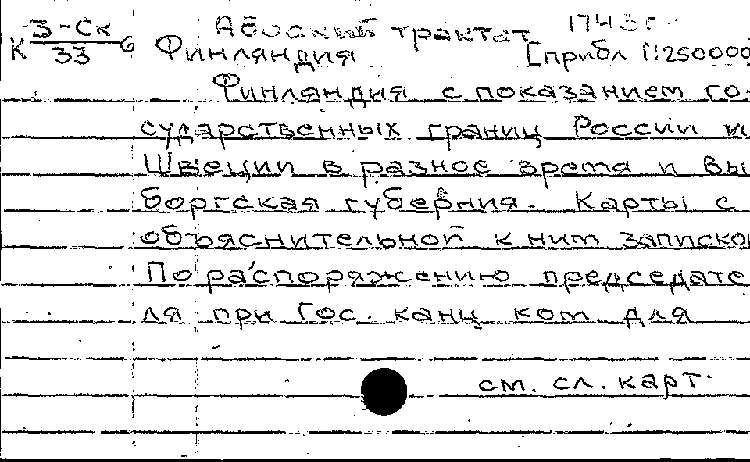 К 3-Ск/33 6 Абоский трактат 1743 г.
Финляндия [прибл 1:250000
Финляндия с показанием го-
сударственных границ России и
Швеции в разное время и Вы-
боргская губерния. Карты с
объяснительной к ним запиской
По распоряжению председате
ля при Гос. канц ком для
см. сл. карт.